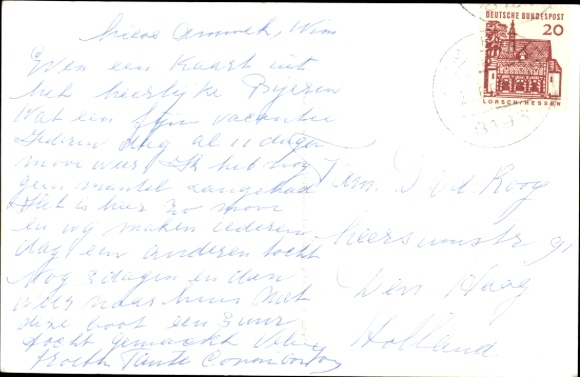 Lieve Annemiek, Wim
Even een kaart uit
het heerlijke Byeren
Wat een fijn vacantie
Iederen dag al 11 dagen
mooi weer. Ik heb nog
geen mantel aangehad
Het is hier zo mooi
en wij maken iederen
dag een anderen tocht
Nog 3 dagen en dan
weer naar huis. Met
deze boot een 3 uur
tocht gemaakt. Veler
Groeten Tante
DEUTSCHE BUNDESPOST
20
LORSCH/HESSEN
Fam. D v d Koog
91
Den Haag
Holland